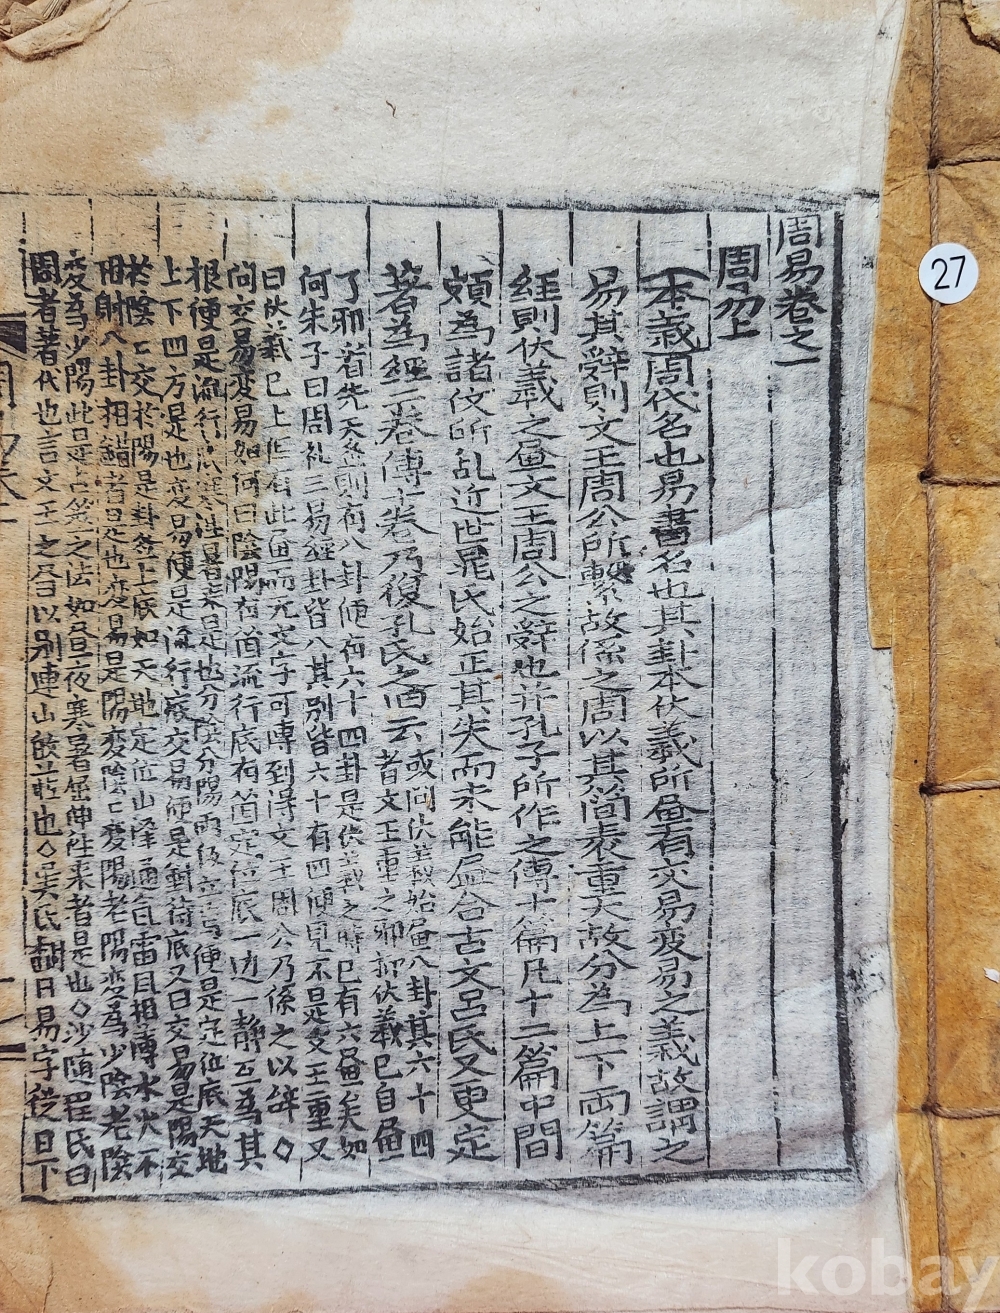 周易卷之一
周易上
本義周代名也易書名也其卦本伏羲所畫有交易變易之義故謂之
易其辭則文王周公所繫故係之周以其簡袠重大故分為上下兩篇
經則伏羲之畫文王周公之辭也并孔子所作之傳十篇凡十二篇中間
頗為諸儒所乱近世晁氏始正其失而未能盡合古文呂氏又更定
著為經二卷傳十卷乃復孔氏之舊云
或問伏羲始畫八卦其六十四
者文王重之邪抑伏羲已自畫
了邪看先天啚則有八卦便有六十四卦是伏羲之時已有六畫矣如
何朱子曰周礼三易經卦皆八其別皆六十有四便見不是文王重又
曰伏羲已上但有此畫而无文字可傳到得文王周公乃係之以辞◇
問交易変易如何曰陰陽有箇流行底有箇定位底一动一静互為其
根便是流行底寒暑往來是也分陰分陽兩仪立焉便是定位底天地
上下四方是也变易便是流行底交易便是對待底又曰交易是陽交
於陰陰交於陽是卦啚上底如天地定位山澤通气雷風相薄水火不
相射八卦相錯者是也变易是陽変陰陰変陽老陽変為少陰老陰
变為少陽此是占筮之法如昼夜寒暑屈伸往来者是也◇沙隨程氏曰
周者著代也言文王之昜以別連山歸藏也◇吳氏翻曰易字從日下
27
kobay